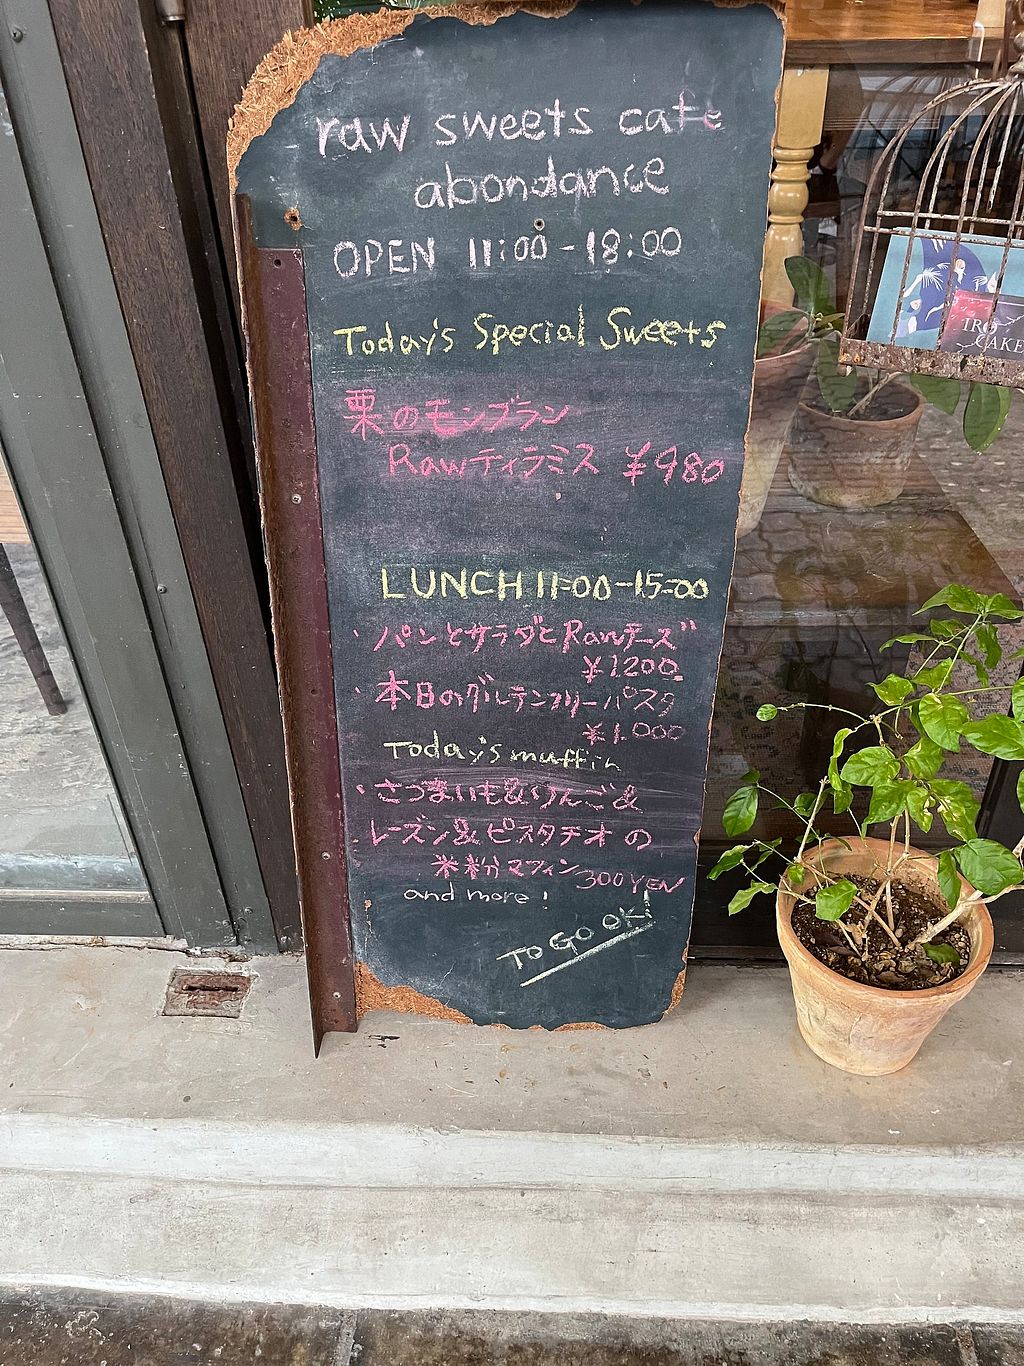 raw sweets cafe
abondance
OPEN 11:00-18:00
Today's Special Sweets
栗のモンブラン
Rawティラミス ¥980
LUNCH 11:00-15:00
・パンとサラダとRawチーズ
¥1.200.
・本日のグルテンフリーパスタ
¥1.000
Today's muffin
・さつまいも&りんご&
レーズン&ピスタチオの
米粉マフィン300YEN
and more!
TO GO OK!
IRO
CAKE